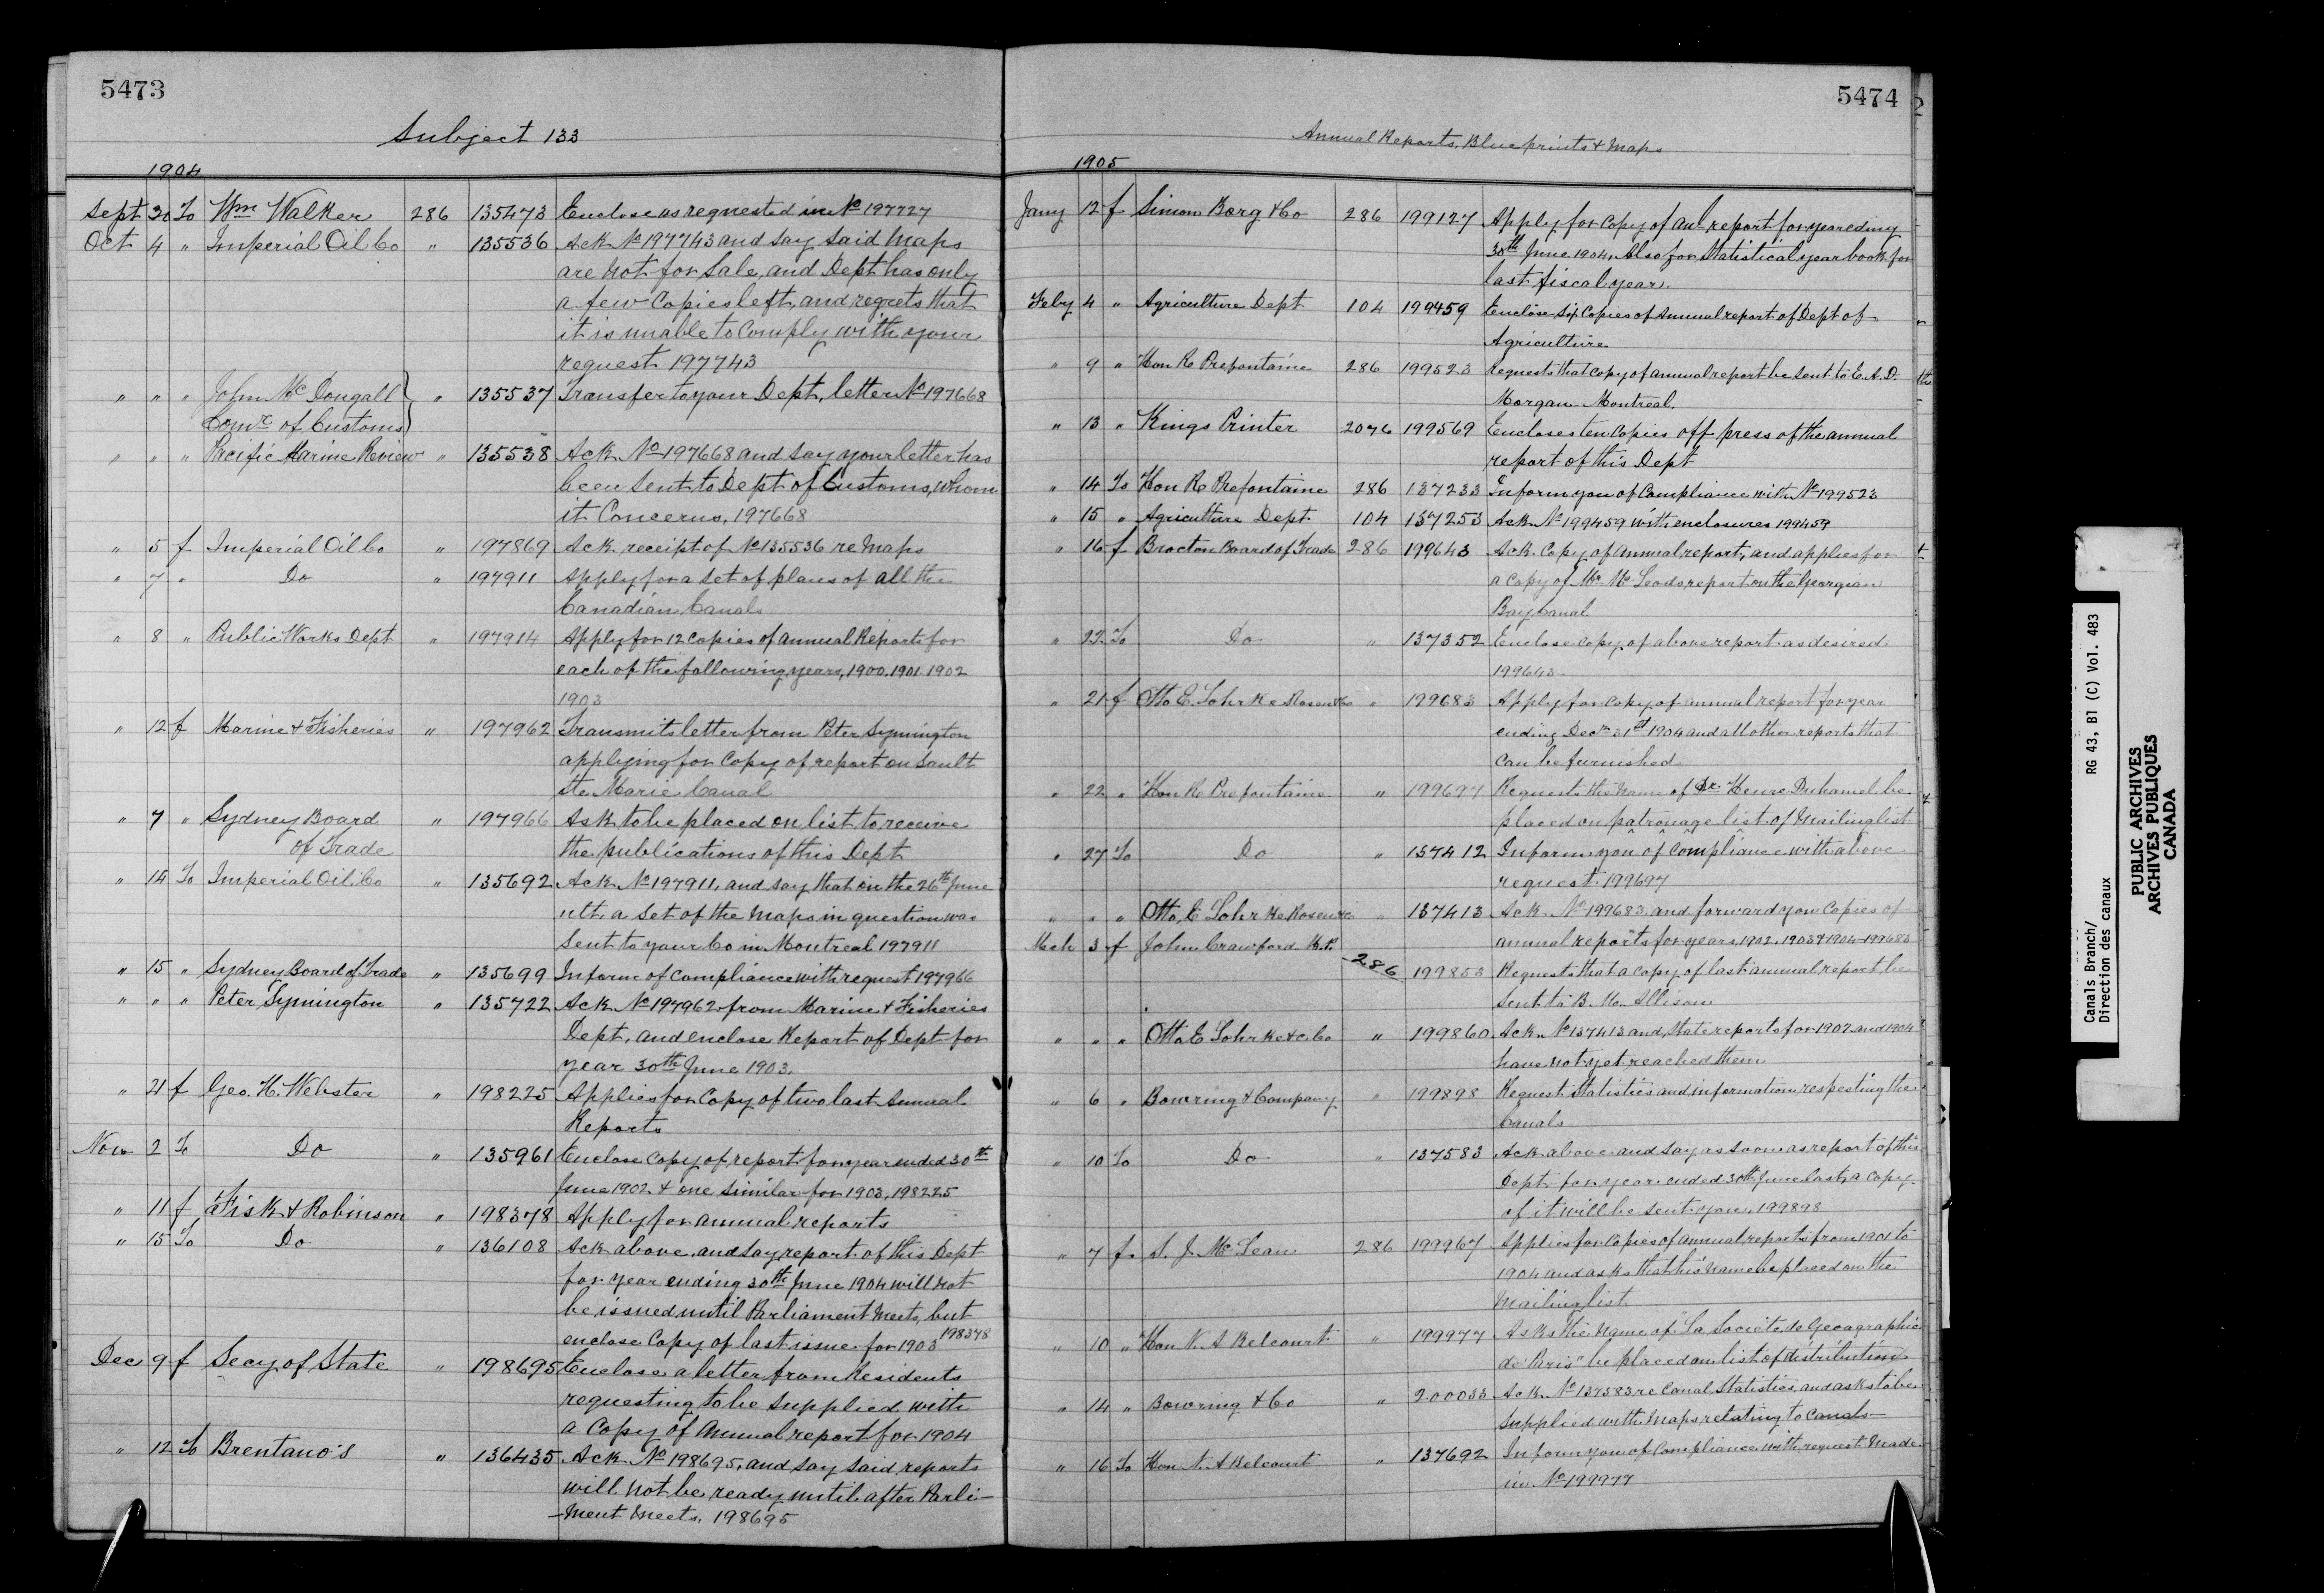 5473
Subject 133
1904
Sept 30 To Wm Walker 286 135473 Enclose as requested in No 197727
Oct 4 " Imperial Oil Co " 135536 Ack No 197743 and say said Maps
are not for Sale, and Dept has only
a few Copies left, and regrets that
it is unable to Comply with your
request 197743
" " " John McDougall " 135537 Transfer to your Dept, letter No 197668
Comr of Customs
" " " Pacific Marine Review " 135538 Ack No 197668 and say your letter has
been sent to Dept of Customs, whom
it Concerns, 197668
" 5 f Imperial Oil Co " 197869 Ack receipt of No 135536 re Maps
" 7 " Do " 197911 Apply for a Set of plans of all the
Canadian Canals
" 8 " Public Works Dept " 197914 Apply for 12 Copies of Annual Reports for
each of the following years, 1900. 1901. 1902
1903
" 12 f Marine & Fisheries " 197962 Transmits letter from Peter Symington
applying for Copy of report on Sault
Ste Marie Canal
" 7 " Sydney Board " 197966 Ask to be placed on list to receive
of Trade the publications of this Dept
" 14 To Imperial Oil Co " 135692 Ack No 197911, and say that on the 26th June
ult. a Set of the Maps in question was
Sent to your Co in Montreal 197911
" 15 " Sydney Board of Trade " 135699 Inform of Compliance with request 197966
" " " Peter Symington " 135722 Ack No 197962 from Marine & Fisheries
Dept, and enclose Report of Dept for
year 30th June 1903.
" 21 f Geo. H. Webster " 198225 Applies for Copy of two last Annual
Reports
Nov 2 To Do " 135961 Enclose Copy of report for year ended 30th
June 1902 & one similar for 1903, 198225
" 11 f Fisk & Robinson " 198378 Apply for annual reports
" 15 To Do " 136108 Ack above, and say report of this Dept
for year ending 30th June 1904 will not
be issued until Parliament Meets, but
enclose Copy of last issue for 1903 198378
Dec 9 f Secy of State " 198695 Enclose a letter from Residents
requesting to be Supplied with
a Copy of Annual report for 1904
" 12 To Brentano's " 136435 Ack No 198695, and say said reports
will not be ready until after Parli-
-ment Meets. 198695
5474
Annual Reports, Blue prints & Maps
1905
Jany 12 f Simon Borg & Co 286 199127 Apply for Copy of Anl report for year ediny
30th June 1904, Also for Statistical year book for
last fiscal year.
Feby 4 " Agriculture Dept 104 199459 Enclose Six Copies of Annual report of Dept of
Agriculture
" 9 " Hon R Prefontaine 286 199523 Requests that copy of annual report be sent to E. A. D.
Morgan Montreal.
" 13 " Kings Printer 2076 199569 Encloses ten Copies off press of the annual
report of this Dept
" 14 To Hon R Prefontaine 286 137233 Inform you of Compliance with No 199523
" 15 " Agriculture Dept 104 137253 Ack No 199459 with enclosures 199459
" 16 f Brocton Board of Trade 286 199643 Ack. Copy of Annual report, and applies for
a Copy of Mr McLeods report on the Georgian
Bay Canal
" 22 To Do " 137352 Enclose Copy of above report as desired
199643
" 21 f Otto E. Lohrke " 199683 Apply for Copy of annual report for year
ending Decr 31st 1904 and all other reports that
can be furnished
" 22 " Hon R Prefontaine " 199697 Requests the name of Dr. Henre Duhamel be
placed on patronage list of Mailing list
" 27 To Do " 137412 Inform you of Compliance with above
request 199697
" " " Otto E Lohrke " 137413 Ack No 199683 and forward you Copies of
annual reports for years, 1902, 1903 & 1904 199683
Mch 3 f John Crawford M.P. 286 199853 Requests that a copy of last annual report be
sent to B. M. Allison
" " " Otto E Lohrke & Co " 199860 Ack No 137413 and State reports for 1902 and 1904
have not yet reached them
" 6 " Bowring & Company " 199898 Request Statistics and information respecting the
Canals
" 10 To Do " 137583 Ack above and say as soon as report of this
Dept for year ended 30th June last, a Copy
of it will be sent you, 199898
" 7 f S. J. McLean 286 199967 Applies for Copies of Annual reports from 1901 to
1904 and asks that his Name be placed on the
Mailing list
" 10 " Hon N. A Belcourt " 199977 Asks the Name of "La Societe de Geographie
de Paris" be placed on list of distribution
" 14 " Bowring & Co " 200033 Ack No 137583 re Canal Statistics and asks to be
Supplied with Maps relating to Canals
" 16 To Hon N. A Belcourt " 137692 Inform you of Compliance with request Made
in No 199977
Canals Branch/ RG 43, B1 (C) Vol. 483
Direction des canaux
PUBLIC ARCHIVES
ARCHIVES PUBLIQUES
CANADA